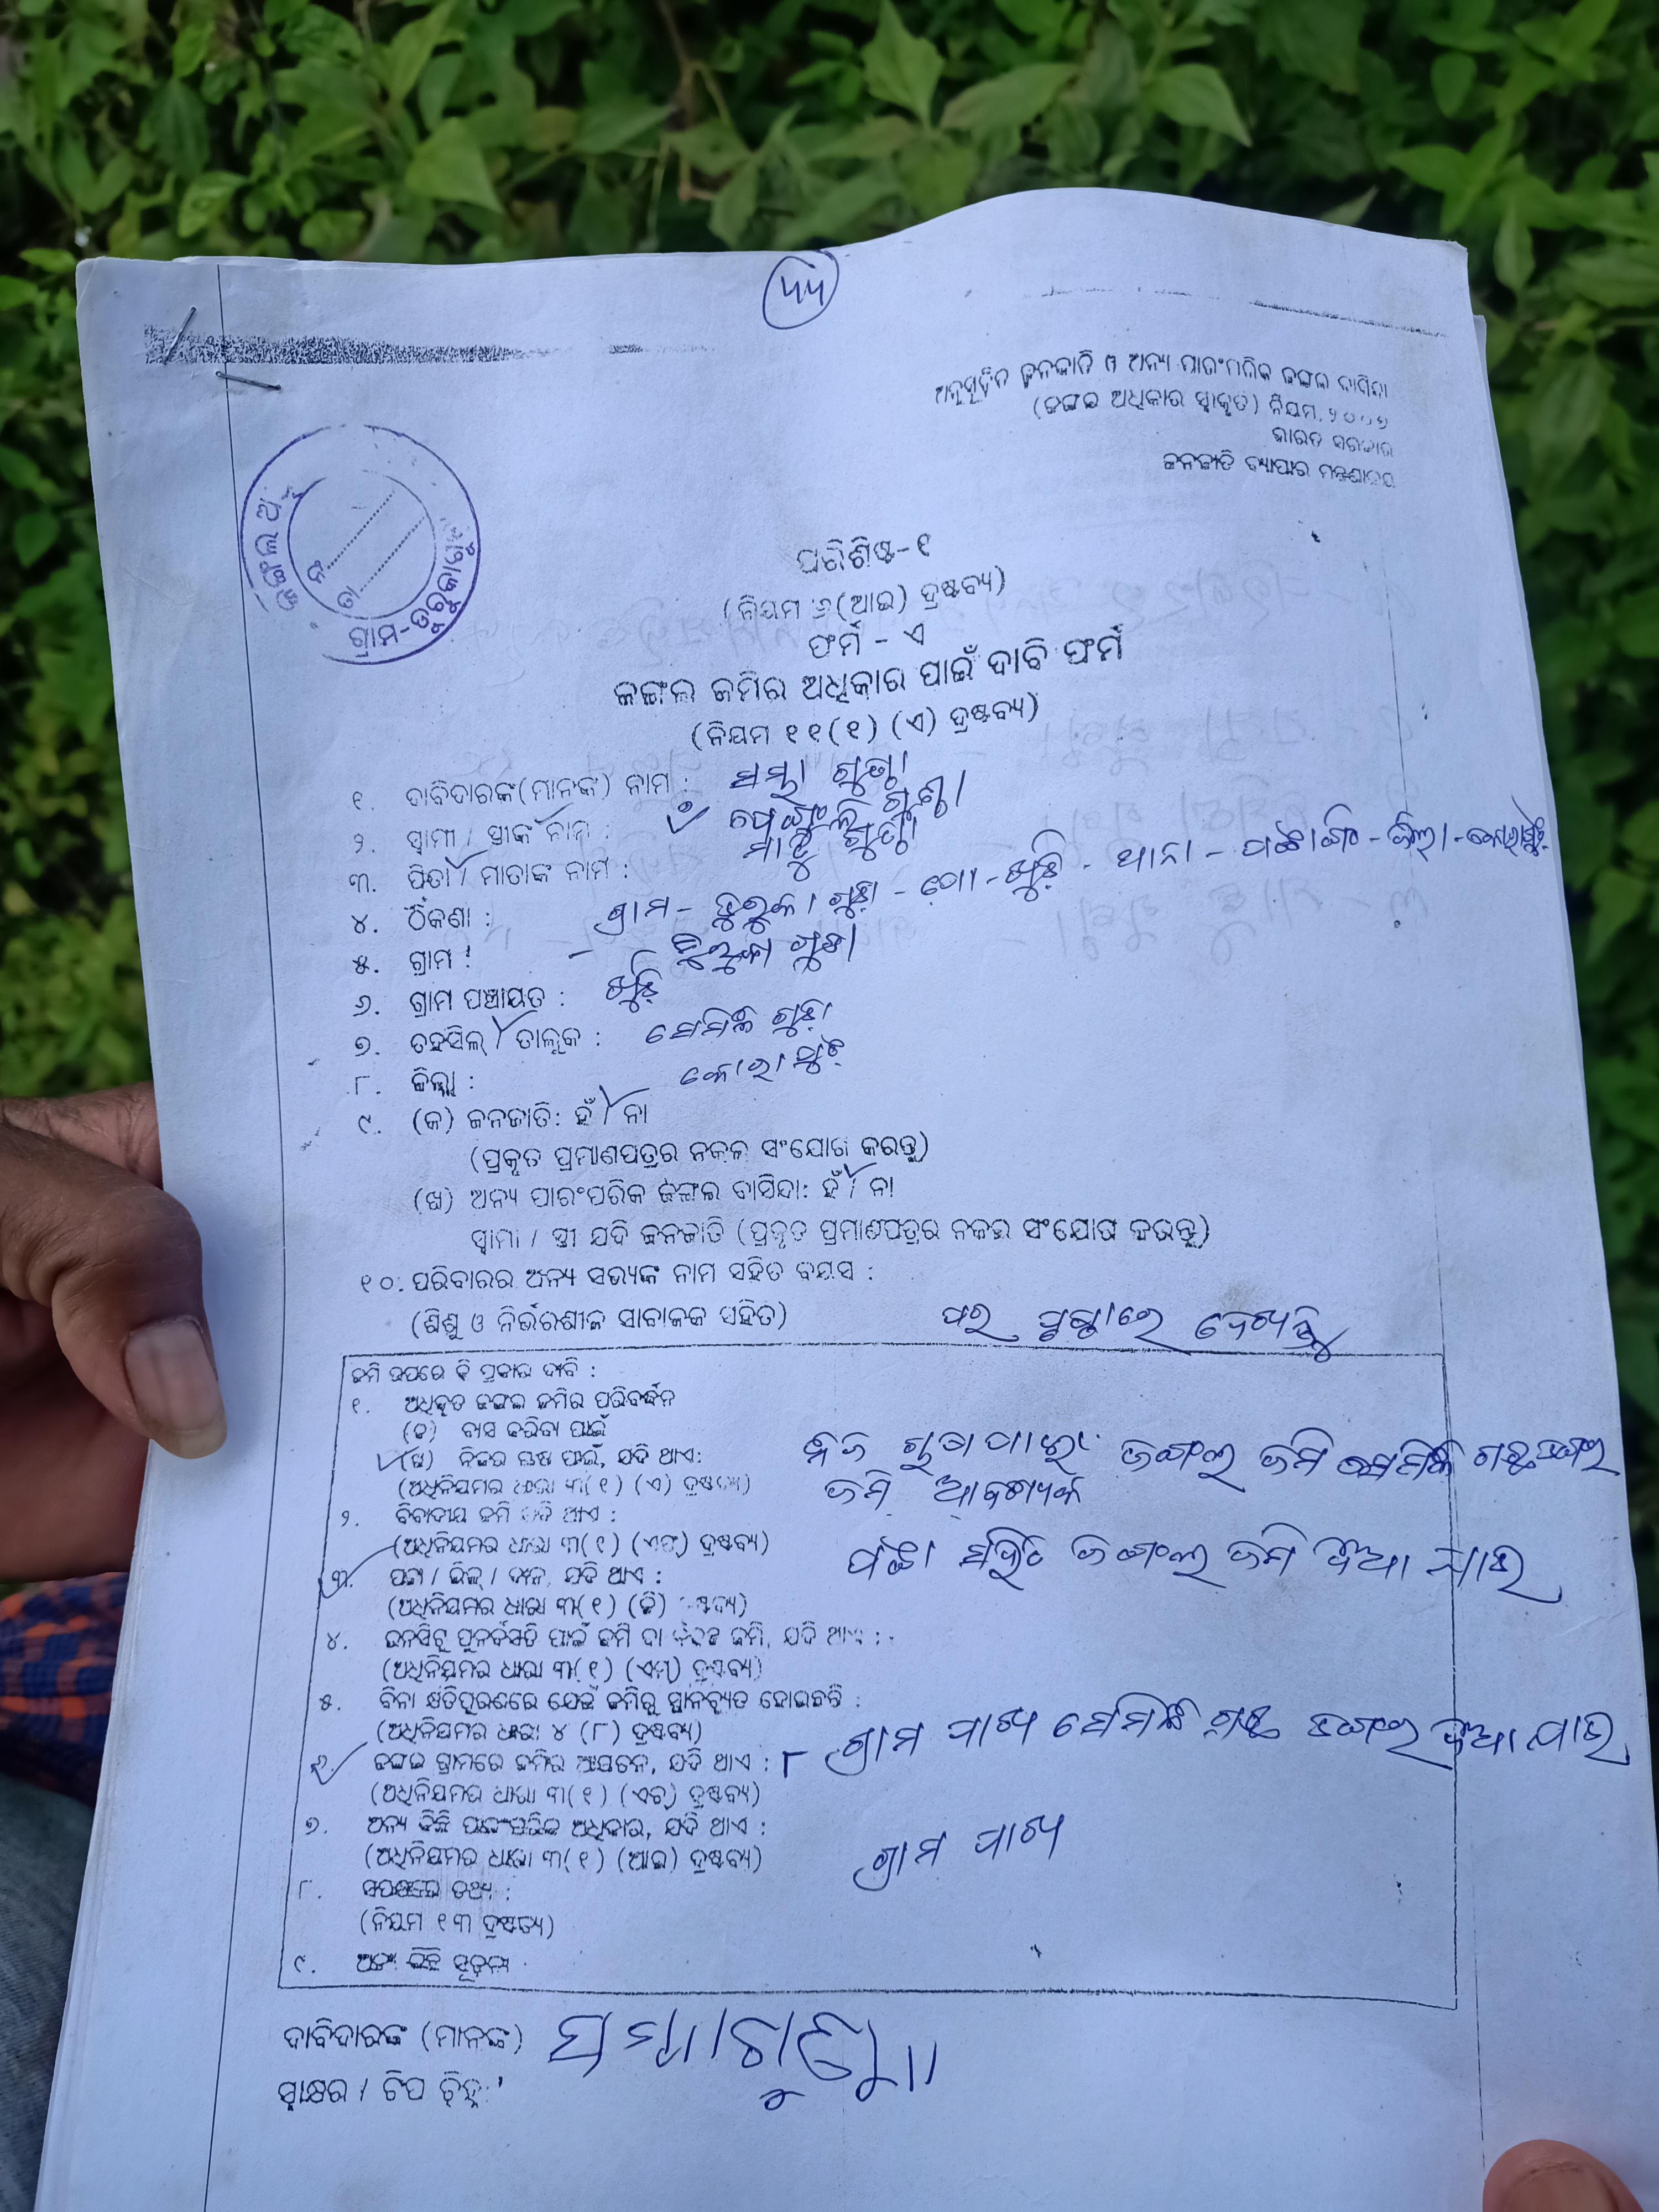 ୫୫
ଅନୁସୂଚିତ ଜନଜାତି ଓ ଅନ୍ୟ ପାରଂପରିକ ଜଙ୍ଗଲ ବାସିନ୍ଦା
(ଜଙ୍ଗଲ ଅଧିକାର ସ୍ୱୀକୃତି) ନିୟମ, ୨୦୦୭
ଭାରତ ସରକାର
ଜନଜାତି ବ୍ୟାପାର ମନ୍ତ୍ରଣାଳୟ
ଜଙ୍ଗଲ ଅ
ନଂ
ତା
ଗ୍ରାମ-ଡୁରୁକାଗୁ
ପରିଶିଷ୍ଟ-୧
(ନିୟମ ୬(ଆଇ) ଦ୍ରଷ୍ଟବ୍ୟ)
ଫର୍ମ - ଏ
ଜଙ୍ଗଲ ଜମିର ଅଧିକାର ପାଇଁ ଦାବି ଫର୍ମ
(ନିୟମ ୧୧(୧) (ଏ) ଦ୍ରଷ୍ଟବ୍ୟ)
୧. ଦାବିଦାରଙ୍କ(ମାନଙ୍କ) ନାମ :
୨. ସ୍ୱାମୀ / ସ୍ତ୍ରୀଙ୍କ ନାମ :
୩. ପିତା / ମାତାଙ୍କ ନାମ :
୪. ଠିକଣା : ଗ୍ରାମ - ଡୁରୁକାଗୁଡ଼ା - ପୋ - ଖୁଡ଼ି - ଥାନା - - ଜିଲ୍ଲା - କୋରାପୁଟ
୫. ଗ୍ରାମ : - ଡୁରୁକାଗୁଡା
୬. ଗ୍ରାମ ପଞ୍ଚାୟତ : ଖୁଡ଼ି
୭. ତହସିଲ୍ / ତାଲୁକ : ସେମିଳିଗୁଡ଼ା
୮. ଜିଲ୍ଲା : କୋରାପୁଟ
୯. (କ) ଜନଜାତି: ହଁ / ନା
(ପ୍ରକୃତ ପ୍ରମାଣପତ୍ରର ନକଲ ସଂଯୋଗ କରନ୍ତୁ)
(ଖ) ଅନ୍ୟ ପାରଂପରିକ ଜଙ୍ଗଲ ବାସିନ୍ଦା: ହଁ / ନା
ସ୍ୱାମୀ / ସ୍ତ୍ରୀ ଯଦି ଜନଜାତି (ପ୍ରକୃତ ପ୍ରମାଣପତ୍ରର ନକଲ ସଂଯୋଗ କରନ୍ତୁ)
୧୦. ପରିବାରର ଅନ୍ୟ ସଭ୍ୟଙ୍କ ନାମ ସହିତ ବୟସ :
(ଶିଶୁ ଓ ନିର୍ଭରଶୀଳ ସାବାଳକ ସହିତ) ପର ପୃଷ୍ଠାରେ ଦେଖନ୍ତୁ
ଜମି ଉପରେ କି ପ୍ରକାର ଦାବି :
୧. ଅଧିକୃତ ଜଙ୍ଗଲ ଜମିର ପରିବର୍ଦ୍ଧନ
(କ) ବାସ କରିବା ପାଇଁ
(ଖ) ନିଜର ଚାଷ ପାଇଁ, ଯଦି ଥାଏ:
(ଅଧିନିୟମର ଧାରା ୩(୧) (ଏ) ଦ୍ରଷ୍ଟବ୍ୟ) ଜମି ଆବଶ୍ୟକ
୨. ବିବାଦୀୟ ଜମି ଯଦି ଥାଏ :
(ଅଧିନିୟମର ଧାରା ୩(୧) (ଏଫ୍) ଦ୍ରଷ୍ଟବ୍ୟ)
୩. ପଟ୍ଟା / ଲିଜ୍ / ଦାନ, ଯଦି ଥାଏ : ପଟ୍ଟା ସହିତ ଜଙ୍ଗଲ ଜମି ଦିଆ ଯାଉ
(ଅଧିନିୟମର ଧାରା ୩(୧) (ଜି) ଦ୍ରଷ୍ଟବ୍ୟ)
୪. ଇନସିଟୁ ପୁନର୍ବସତି ପାଇଁ ଜମି ବା ବିକଳ୍ପ ଜମି, ଯଦି ଥାଏ :
(ଅଧିନିୟମର ଧାରା ୩(୧) (ଏମ୍) ଦ୍ରଷ୍ଟବ୍ୟ)
୫. ବିନା କ୍ଷତିପୂରଣରେ ଯେଉଁ ଜମିରୁ ସ୍ଥାନଚ୍ୟୁତ ହୋଇଛନ୍ତି :
(ଅଧିନିୟମର ଧାରା ୪ (୮) ଦ୍ରଷ୍ଟବ୍ୟ)
୬. ଜଙ୍ଗଲ ଗ୍ରାମରେ ଜମିର ଆୟତନ, ଯଦି ଥାଏ : ଗ୍ରାମ ଜଙ୍ଗଲ ଦିଆ ଯାଉ
(ଅଧିନିୟମର ଧାରା ୩(୧) (ଏଚ୍) ଦ୍ରଷ୍ଟବ୍ୟ)
୭. ଅନ୍ୟ କିଛି ପାରଂପରିକ ଅଧିକାର, ଯଦି ଥାଏ :
(ଅଧିନିୟମର ଧାରା ୩(୧) (ଆଇ) ଦ୍ରଷ୍ଟବ୍ୟ) ଗ୍ରାମ
୮. ସପକ୍ଷରେ ତଥ୍ୟ :
(ନିୟମ ୧୩ ଦ୍ରଷ୍ଟବ୍ୟ)
୯. ଅନ୍ୟ କିଛି ସୂଚନା
ଦାବିଦାରଙ୍କ (ମାନଙ୍କ)
ସ୍ୱାକ୍ଷର / ଟିପ ଚିହ୍ନ :